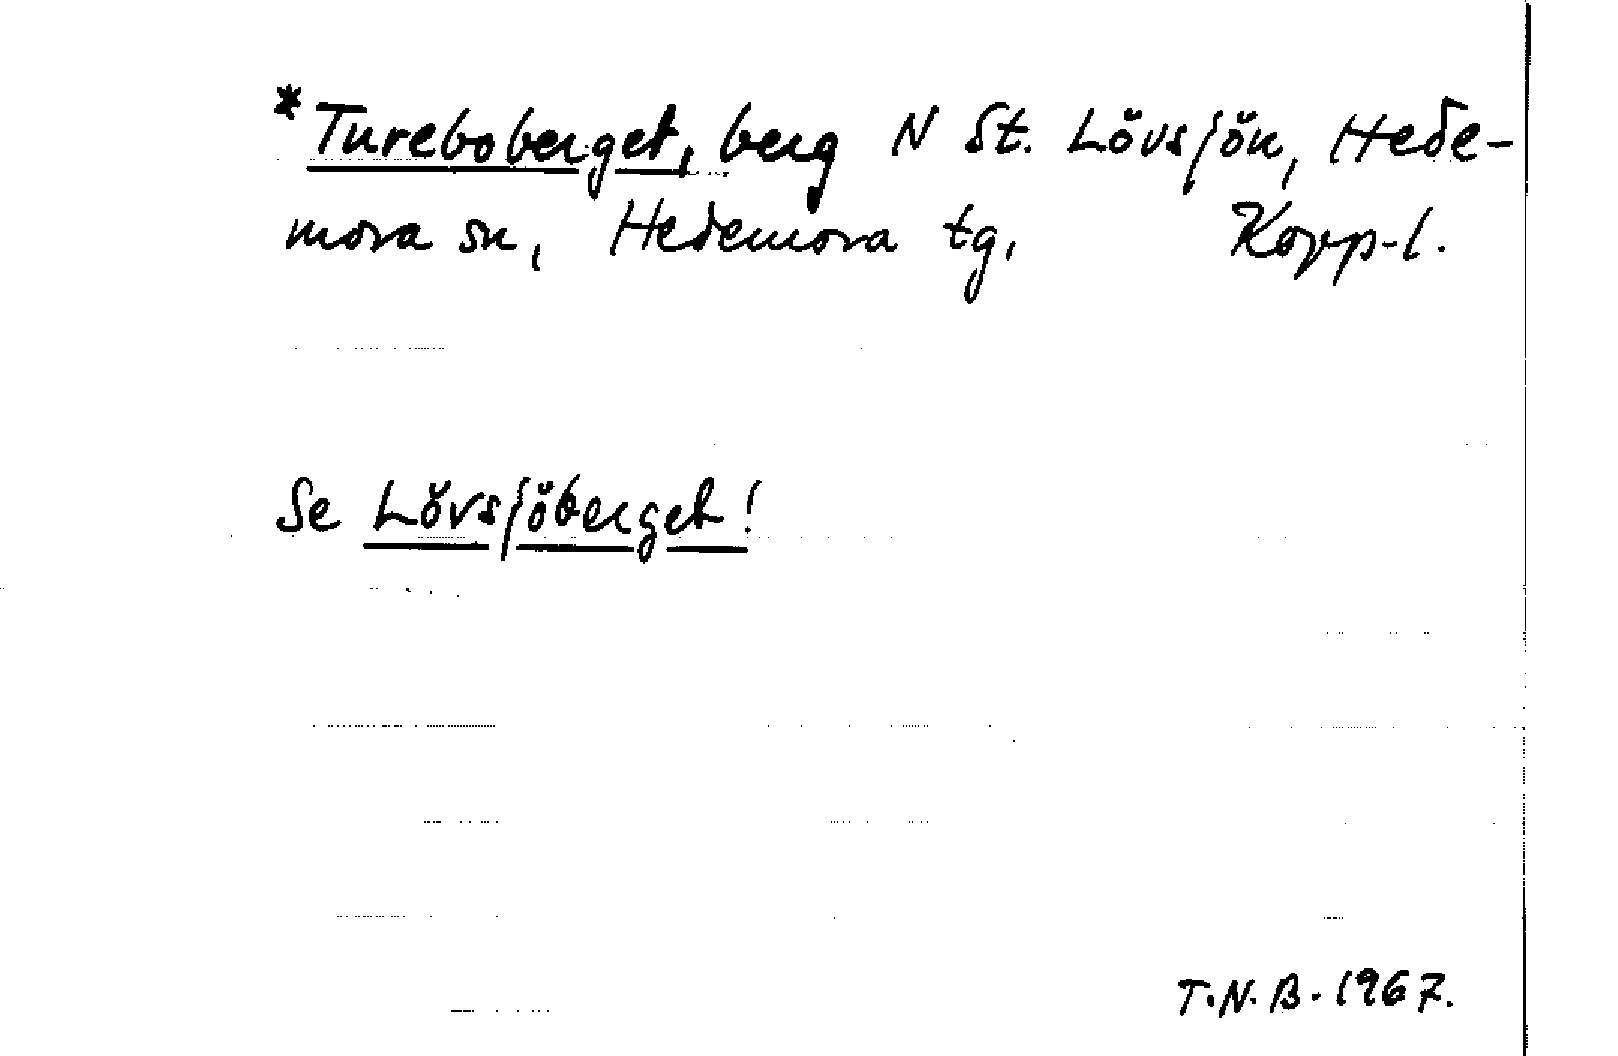 *Tureboberget, berg N St. Lövsjön, Hede-
mora sn, Hedemora tg, Kopp-l.
Se Lövsjöberget!
T.N.B. 1967.